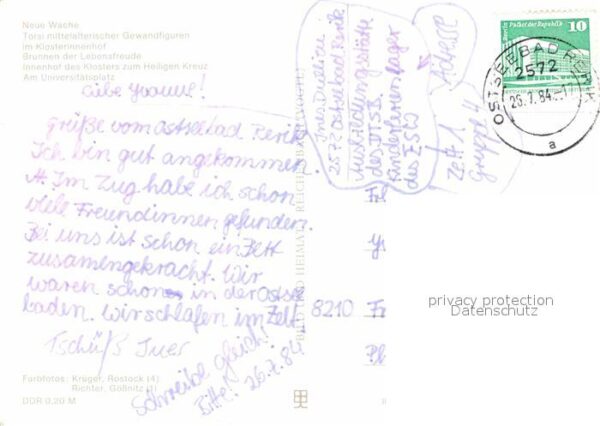 Neue Wache
Torsi mittelalterischer Gewandfiguren
im Klosterinnenhof
Brunnen der Lebensfreude
Innenhof des Klosters zum Heiligen Kreuz
Am Universitätsplatz
Liebe Yvonne!
Grüße vom Ostseebad Rerik
Ich bin gut angekommen
Im Zug habe ich schon
viele Freundinnen gefunden.
Bei uns ist schon ein Zelt
zusamengekracht. Wir
waren schon in der Ostsee
baden. Wir schlafen im Zelt.
Tschüß Ines
Schreibe gleich!
Bitte! 26.7.84
Farbfotos: Krüger, Rostock (4)
Richter, Gößnitz (1)
DDR 0,20 M
BILD UND HEIMAT REICHENBACH
Ines
2572 Ostseebad Rerik
des DTSB
Kinderferienlager
des ESW
Zelt 1
Gruppe 4
Adresse
Palast der Republik
10
OSTSEEBAD RERIK
2572
26.7.84
a
8210
privacy protection
Datenschutz